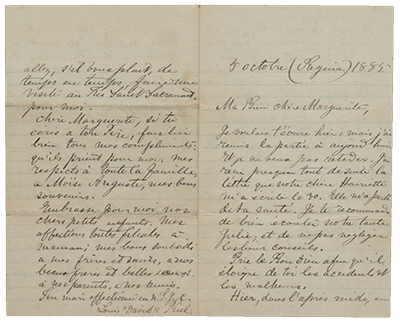 5 octobre (Regina) 1885
Ma Bien chère Marguerite,
Je voulais t'écrire hier: mais j'ai
remis la partie à aujourd'hui
Et je ne veux pas retarder. J'ai
reçu presque tout de suite la
lettre que notre chère Henriette
m'a écrite le 30. Elle m'a parlé
de ta santé. Je te recommande
de bien écouter notre tante
Julie, et de ne pas négliger
les bons conseils.
Prie le Bon Dieu afin qu'il
éloigne de toi les accidents et
les malheurs.
Hier, dans l'après midi, on
allez, s'il vous plait, de
temps en temps, faire une
visite au Très Saint Sacrement
pour moi.
Chère Marguerite, si tu
écris à ton Père, fais lui
bien tous mes compliments:
qu'ils prient pour moi. mes
respects à toute ta famille,
a Moïse Auguste, mes bons
souvenirs.
Embrasse pour moi nos
chers petits enfants. mes
affections toute filiales à
maman; mes bons souhaits
à mes frères et sœurs, à nos
beaux frères et belles sœurs
à nos parents, à nos amis.
Ton mari affectionné en N.S.J.C.
Louis "David" Riel